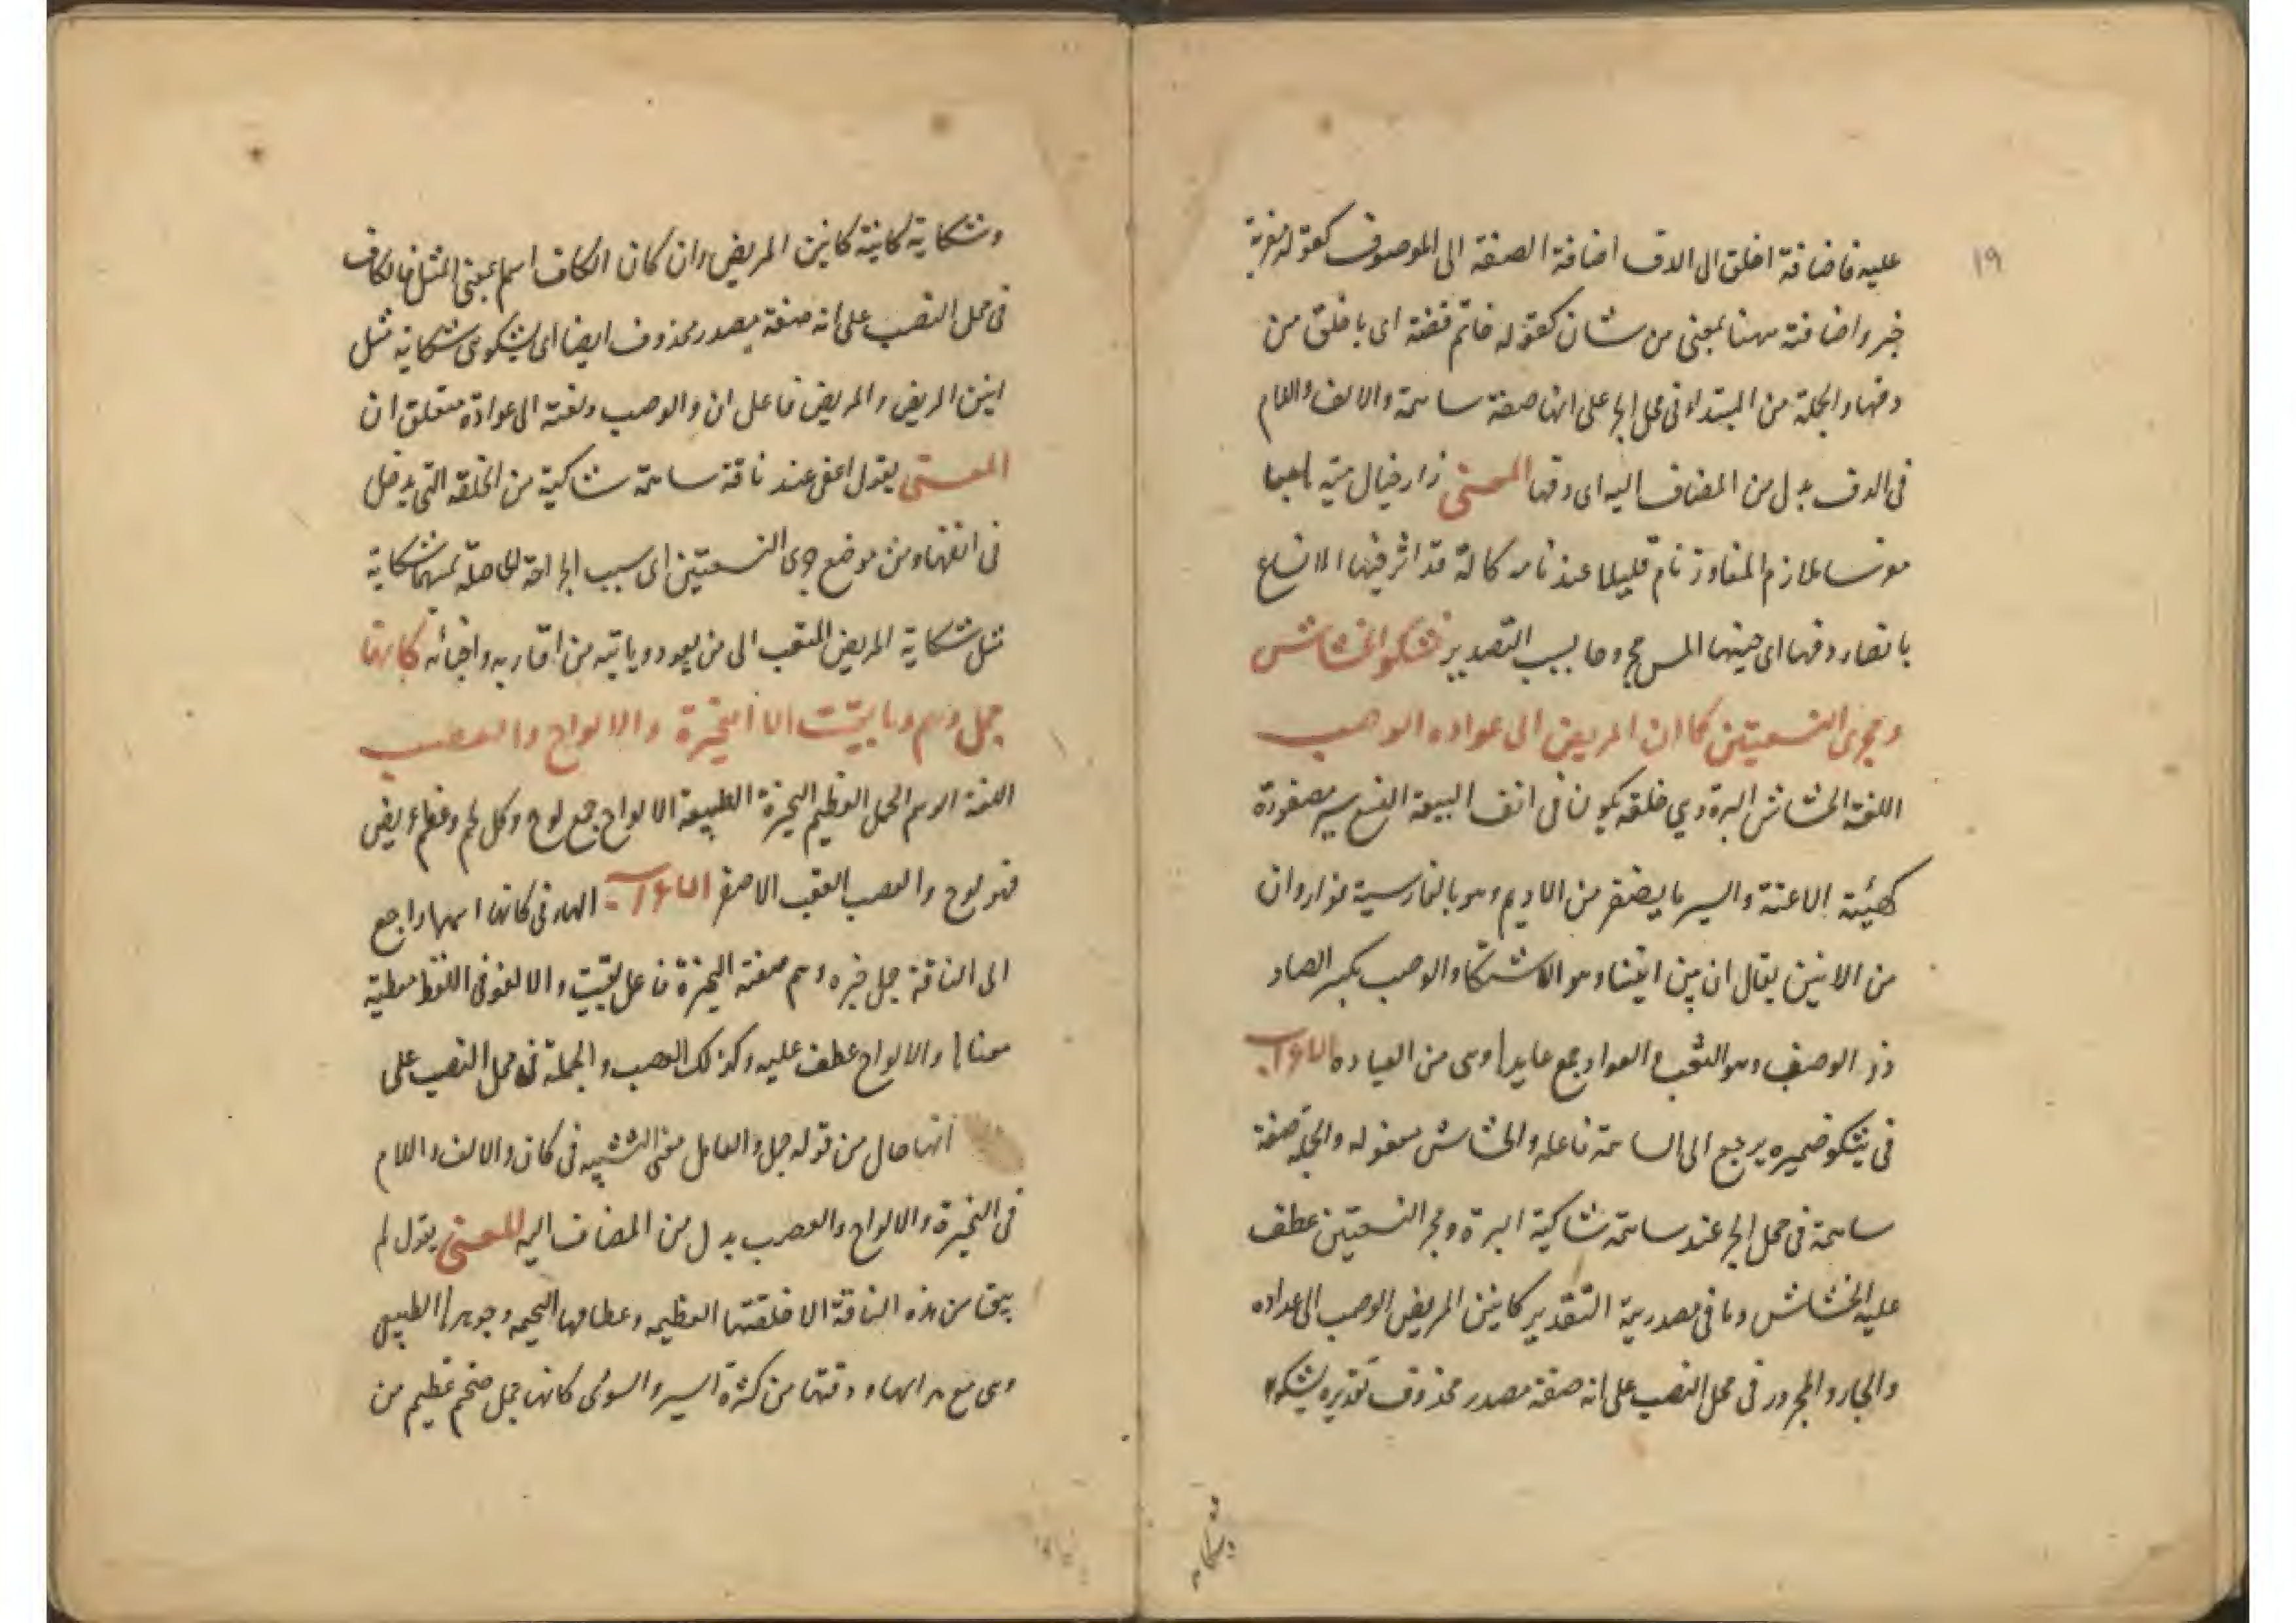 ١٩
عليه فاضافة اخلق الى الدف اضافة الصفة الى الموصوف كقوله مغربة
خبر واضافته ههنا بمعنى من شان كقوله خاتم فضة اى باخلق من
دفها والجملة من المبتداء فى محل الجر على انها صفة ساهمة والالف واللام
فى الدف بدل من المضاف اليه اى دفها المعنى زار خيال مية
ملازم المفاوز نام قليلا عند ناقة كالة قد اثر فيها الانساع
دفها اى جنبها التصدير تشكو الخشاش
ومجرى النسعتين كما ان المريض الى عواده الوصب
اللغة الخشاش البرة وهي حلقة يكون فى انف النسع سير مضفورة
كهيئة الاعنة والسير ما يضفر من الاديم وهو بالفارسية نوار وان
من الانين يقال ان يئن انينا وهو الاشتكاء والوصب بكسر الصاد
ذو الوصب وهو التعب والعواد جمع عايد وهى من العيادة الاعراب
فى يشكو ضميره يرجع الى الساهمة فاعله والخشاش مفعوله والجملة صفة
ساهمة فى محل الجر عند ساهمة شاكية البرة ومجر النسعتين عطف
عليه الخشاش وما فى مصدرية التقدير كانين المريض الوصب الى عواده
والجار والمجرور فى محل النصب على انه صفة مصدر محذوف تقديره يشكو
وشكاية كاينة كانين المريض وان كان الكاف اسما بمعنى المثل فالكاف
فى محل النصب على انه صفة مصدر محذوف ايضا اى يشكو شكاية مثل
انين المريض والمريض فاعل ان والوصب ونعته الى عواده متعلق ان
المعنى يقول اعنى عند ناقة ساهمة شاكية من الحلقة التى يدخل
فى انفها ومن موضع جرى النسعتين اى بسبب الجراحة الحاصلة منهما شكاية
مثل شكاية المريض المتعب الى من يعوده وياتيه من اقاربه واحبائه كانها
جمل وهم وما بقيت الا النحيزة والالواح والعصب
اللغة الوهم الجمل العظيم النحيزة الطبيعة الالواح جمع لوح وكل لحم وعظم عريض
فهو لوح والعصب العقب الاصفر الاعراب الهاء فى كانها اسمها راجع
الى الناقة جمل خبره وهم صفته النحيزة فاعل بقيت والا لغو فى اللفظ معطية
معناها والالواح عطف عليه وكذلك العصب والجملة فى محل النصب على
انها حال من قوله جمل والعامل معنى التشبيه فى كان والالف واللام
فى النحيزة والالواح والعصب بدل من المضاف اليه المعنى يقول لم
يبق من هذه الناقة الا خلقتها العظيمة وعظامها وجوهرها الطبيعى
وهى مع هزالها ودقتها من كثرة السير والسوق كانها جمل ضخم عظيم من